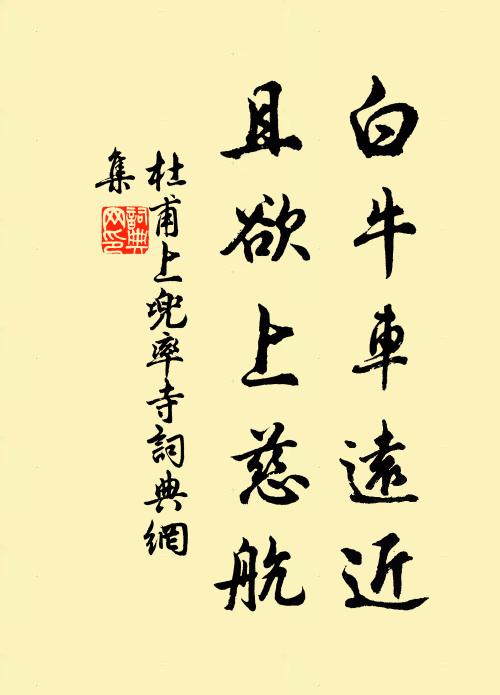 白牛車遠近
且欲上慈航
杜甫上兜率寺詞典網
集
詞典
网印